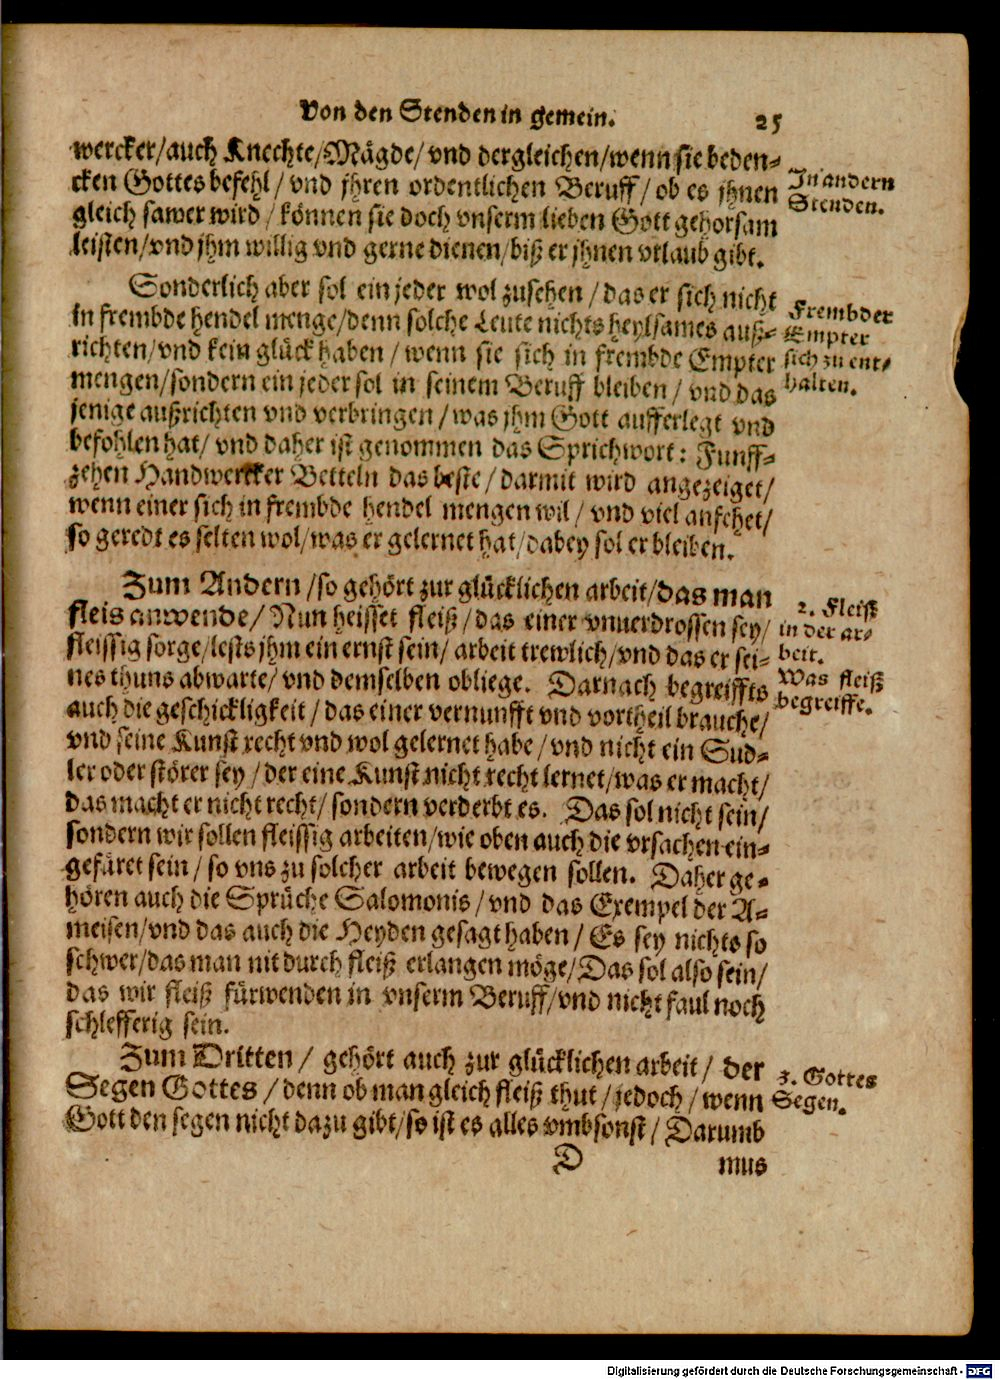 Von den Stenden in gemein. 25
wercker/auch Knechte/Mägde/ vnd dergleichen/wenn sie beden-
cken Gottes befehl / vnd jhren ordentlichen Beruff/ ob es jhnen
gleich sawer wird / können sie doch vnserm lieben Gott gehorsam
leisten/vnd jhm willig vnd gerne dienen/biß er jhnen vrlaub gibt.
In andern
Stenden.
Sonderlich aber sol ein jeder wol zusehen / das er sich nicht
in frembde hendel menge/denn solche Leute nichts heylsames auß-
richten/vnd kein glück haben / wenn sie sich in frembde Empter
mengen/sondern ein jeder sol in seinem Beruff bleiben / vnd das
jenige außrichten vnd verbringen / was jhm Gott aufferlegt vnd
befohlen hat/ vnd daher ist genommen das Sprichwort: Funff-
zehen Handwercker Betteln das beste / darmit wird angezeiget/
wenn einer sich in frembde hendel mengen wil / vnd viel anfehet/
so geredt es selten wol/was er gelernet hat/dabey sol er bleiben.
Frembder
Empter
sich zu ent-
halten.
Zum Andern /so gehört zur glücklichen arbeit/das man
fleis anwende/ Nun heisset fleiß / das einer vnuerdrossen sey/
fleissig sorge/lests jhm ein ernst sein/ arbeit trewlich/vnd das er sei-
nes thuns abwarte/ vnd demselben obliege. Darnach begreiffts
auch die geschickligkeit / das einer vernunfft vnd vortheil brauche/
vnd seine Kunst recht vnd wol gelernet habe /vnd nicht ein Sud-
ler oder störer sey / der eine Kunst nicht recht lernet/was er macht/
das macht er nicht recht/ sondern verderbt es. Das sol nicht sein/
sondern wir sollen fleissig arbeiten/wie oben auch die vrsachen ein-
gefüret sein / so vns zu solcher arbeit bewegen sollen. Daher ge-
hören auch die Sprüche Salomonis / vnd das Exempel der A-
meisen/vnd das auch die Heyden gesagt haben / Es sey nichts so
schwer/das man nit durch fleiß erlangen möge/Das sol also sein/
das wir fleiß fürwenden in vnserm Beruff/vnd nicht faul noch
schlefferig sein.
2. Fleiß
in der ar-
beit.
Was fleiß
begreiffe.
Zum Dritten / gehört auch zur glücklichen arbeit / der
Segen Gottes / denn ob man gleich fleiß thut / jedoch / wenn
Gott den segen nicht dazu gibt/so ist es alles vmbsonst / Darumb
3. Gottes
Segen.
D mus
Digitalisierung gefördert durch die Deutsche Forschungsgemeinschaft - DFG